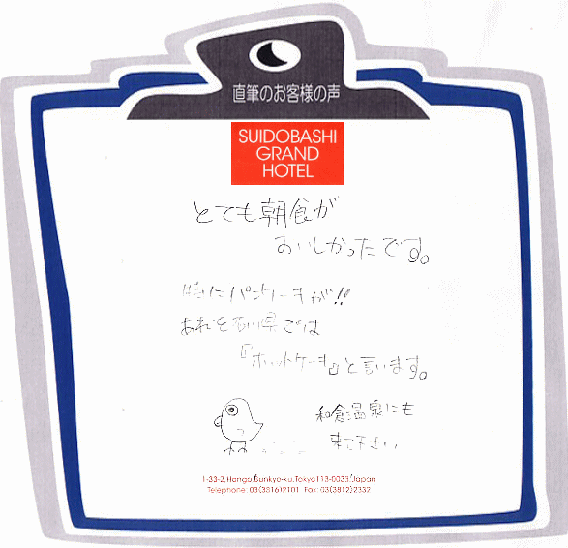 直筆のお客様の声
SUIDOBASHI
GRAND
HOTEL
とても朝食が
おいしかったです。
特にパンケーキが!!
あれを石川県では
『ホットケーキ』と言います。
和倉温泉にも
来て下さい
1-33-2,Hongo,Bunkyo-ku,Tokyo113-0033/Japan
Telephone: 03(3816)2101 Fax: 03(3812)2332